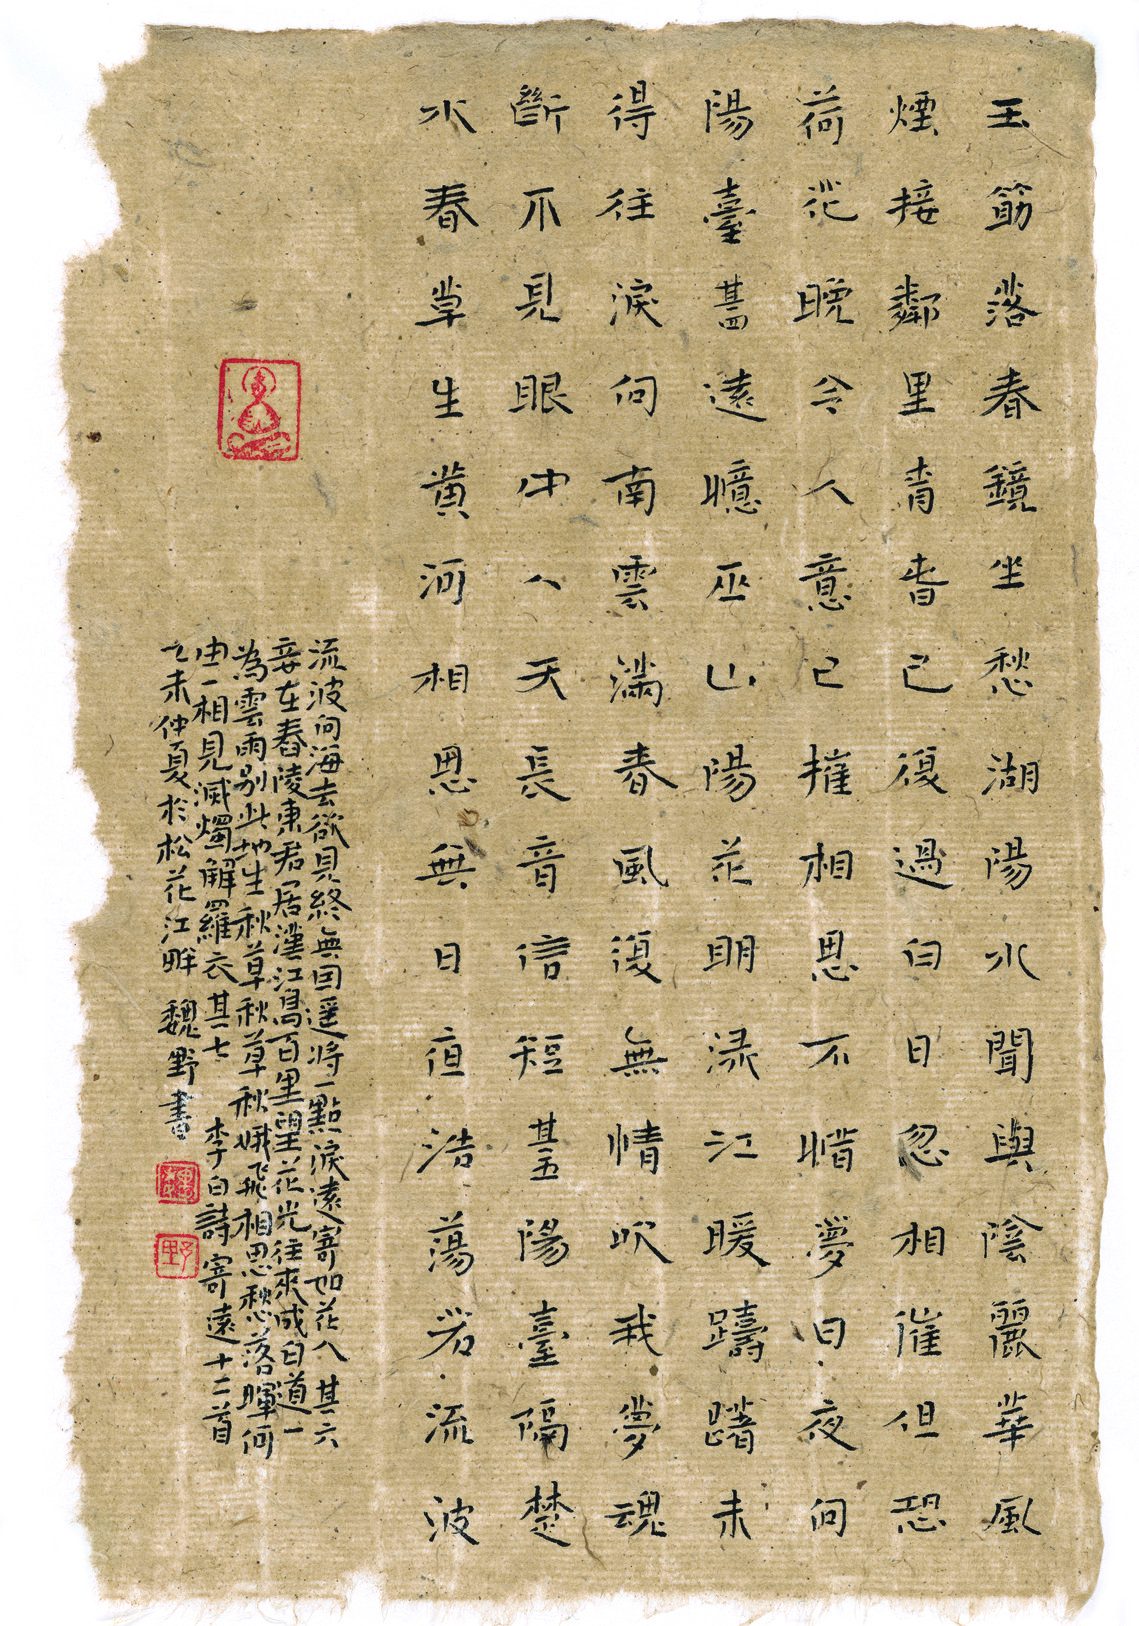 玉筯落春鏡坐愁湖陽水聞與陰麗華風
煙接鄰里青春已復過白日忽相催但恐
荷花晚令人意已摧相思不惜夢日夜向
陽臺其四遠憶巫山陽花明淥江暖躊躇未
得往淚向南雲滿春風復無情吹我夢魂
斷不見眼中人天長音信短其五陽臺隔楚
水春草生黃河相思無日夜浩蕩若流波
流波向海去欲見終無因遥將一點淚遠寄如花人 其六
妾在舂陵東君居漢江島百里望花光往來成白道一
為雲雨别此地生秋草秋草秋蛾飛相思愁落暉何
由一相見滅燭解羅衣其七 李白詩寄遠十二首
乙未仲夏於松花江畔 魏野書
魏
野